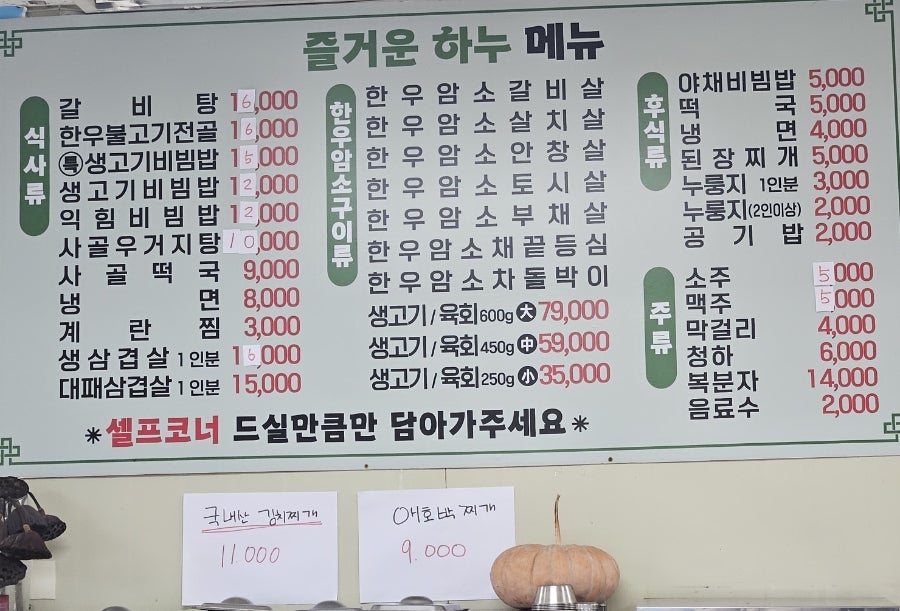 즐거운 하누 메뉴
식사류
갈비탕 16,000
한우불고기전골 16,000
특생고기비빔밥 15,000
생고기비빔밥 12,000
익힘비빔밥 12,000
사골우거지탕 10,000
사골떡국 9,000
냉면 8,000
계란찜 3,000
생삼겹살 1인분 16,000
대패삼겹살 1인분 15,000
한우암소구이류
한우암소갈비살
한우암소살치살
한우암소안창살
한우암소토시살
한우암소부채살
한우암소채끝등심
한우암소차돌박이
생고기/육회 600g 大 79,000
생고기/육회 450g 中 59,000
생고기/육회 250g 小 35,000
후식류
야채비빔밥 5,000
떡국 5,000
냉면 4,000
된장찌개 5,000
누룽지 1인분 3,000
누룽지(2인이상) 2,000
공기밥 2,000
주류
소주 5,000
맥주 5,000
막걸리 4,000
청하 6,000
복분자 14,000
음료수 2,000
*셀프코너 드실만큼만 담아가주세요*
국내산 김치찌개
11.000
애호박 찌개
9.000